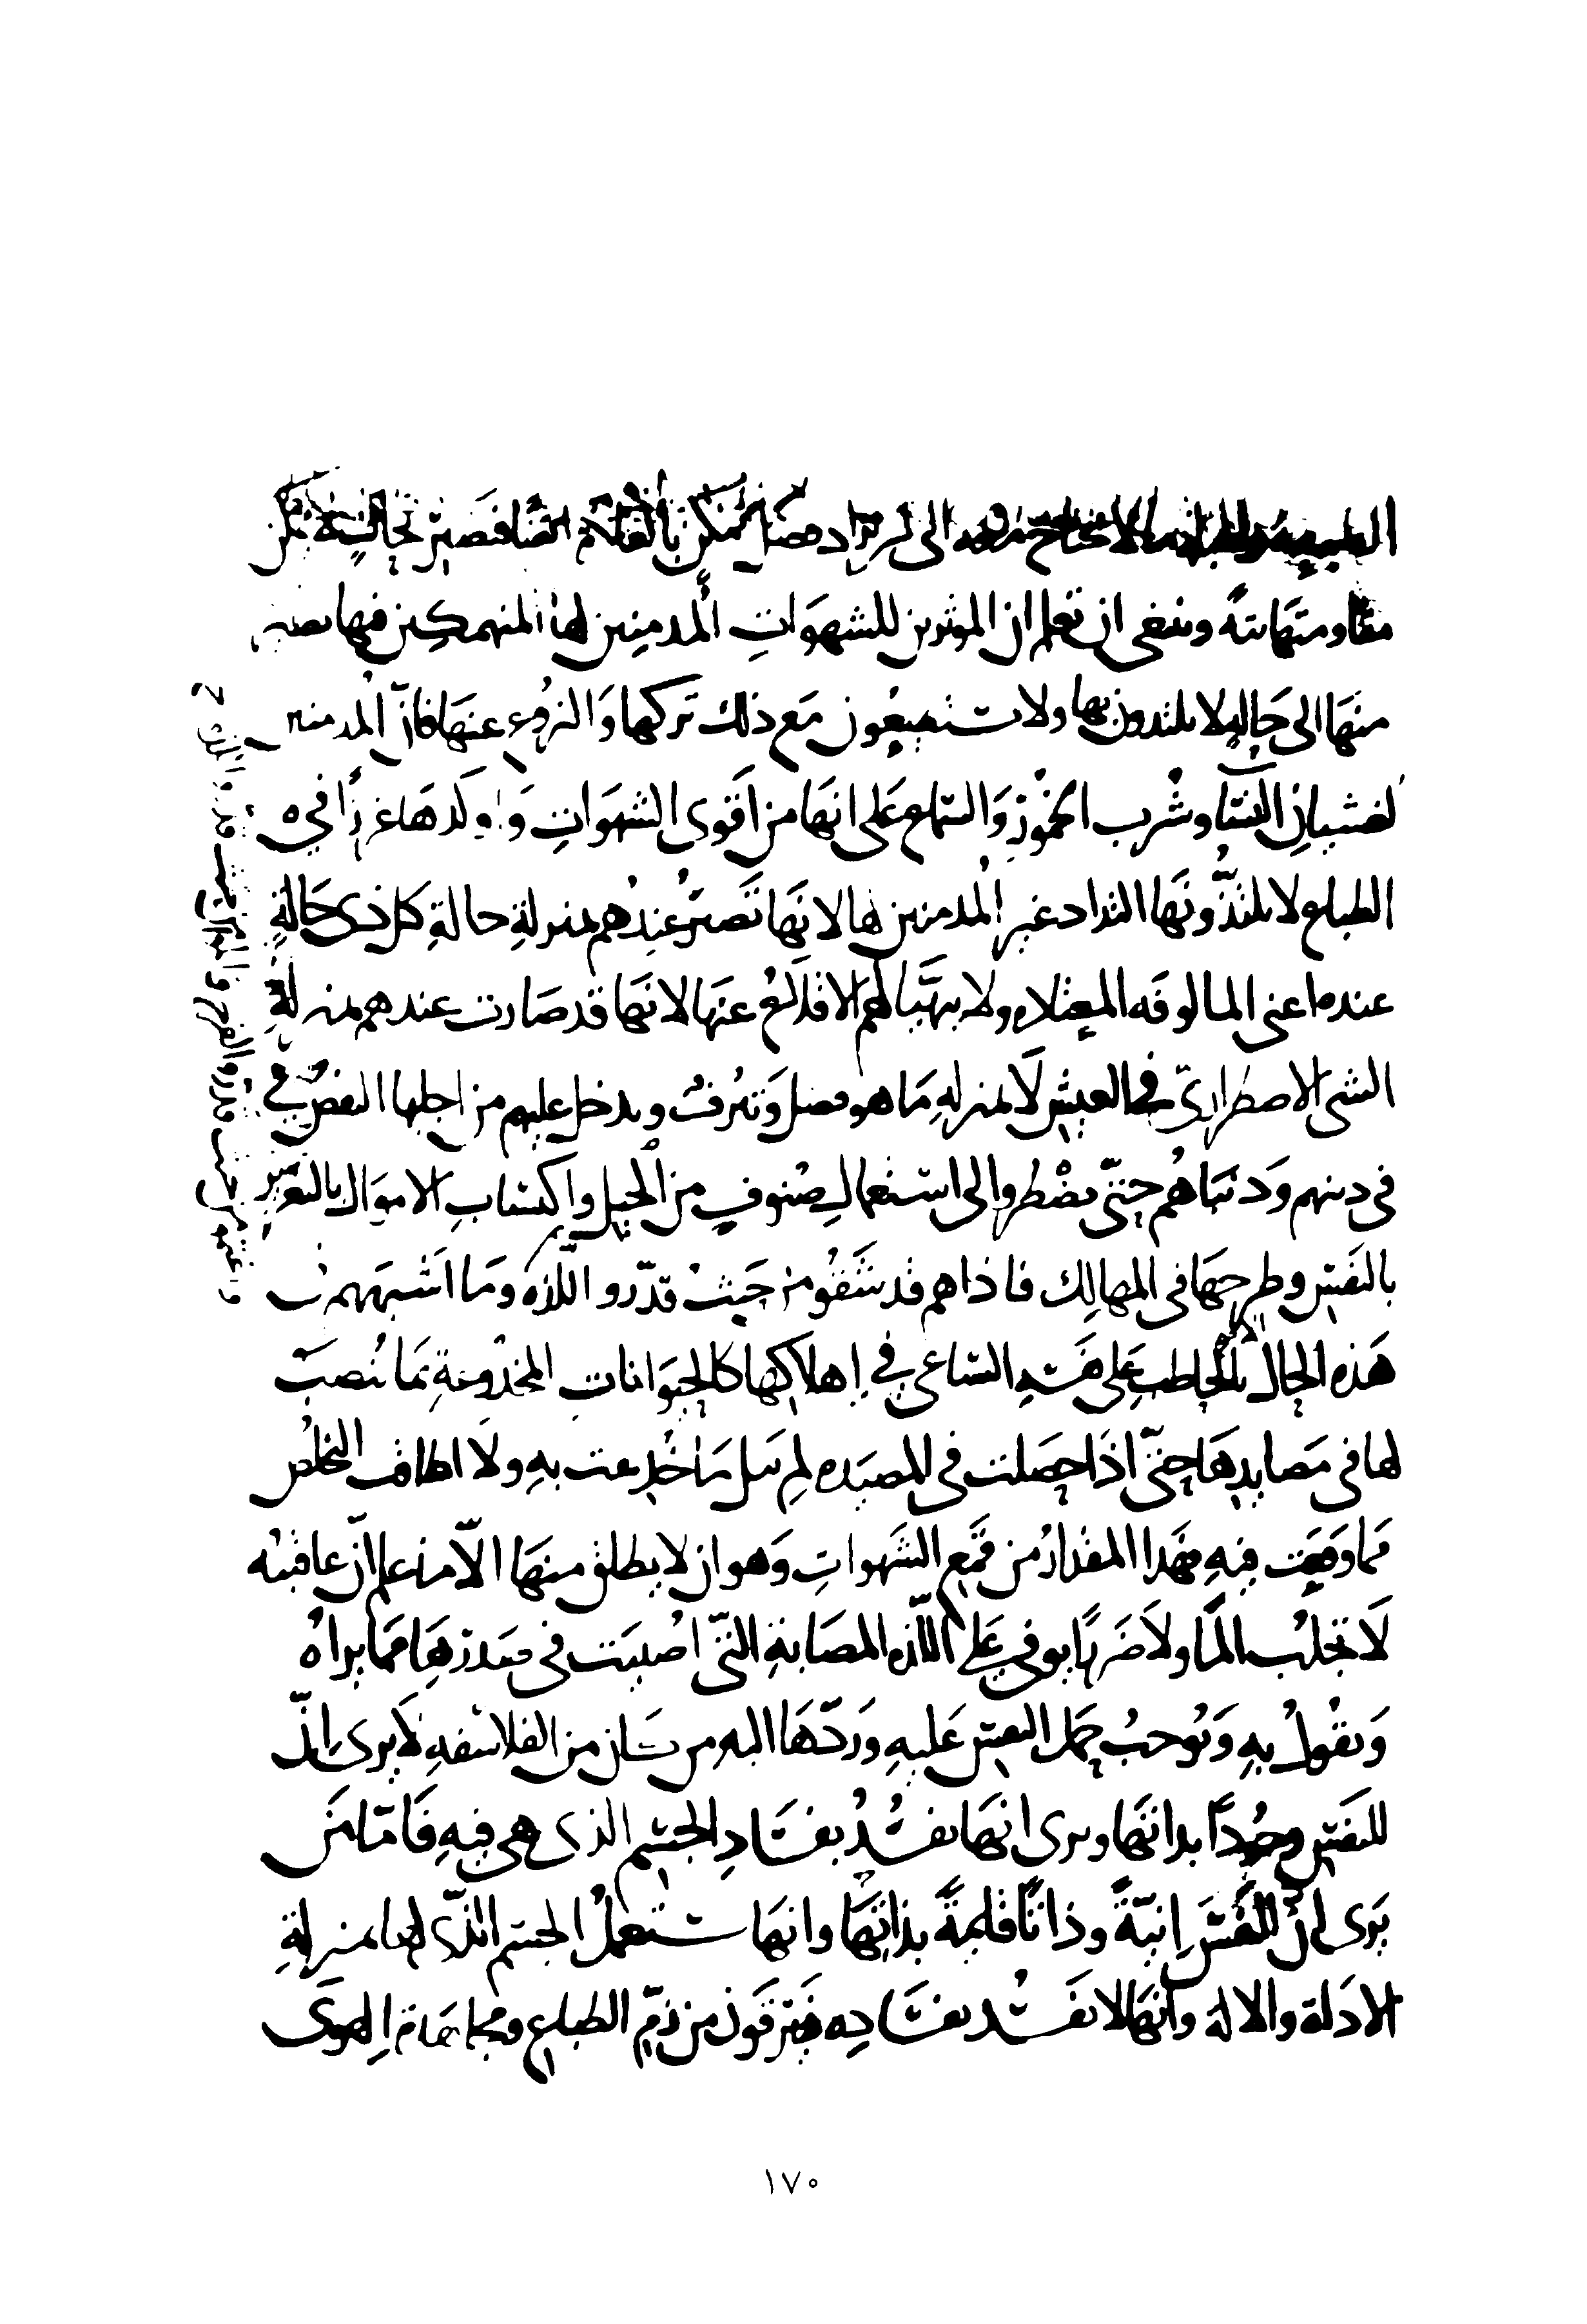 الى
مقاومتها بتة وينبغي ان تعلم ان الموثرين للشهوات المدمنين لها المنهمكين فيها يصير
منها الى حالة لا يلتذون بها ولا يستطيعون مع ذلك تركها والنزوع عنها فان المدمنين
لغشيان النسا وشرب الخمور والسماع على انها من اقوى الشهوات واوكدها غرزا في
الطباع لا يلتذونها التذاد غير المدمنين لها لانها تصير عندهم بمنزلة حالة كل ذي حالة
عنده اعني المالوفه المعتاده ولا يتهيا لهم الاقلاع عنها لانها قد صارت عندهم بمنزلة
الشي الاضطراري في العيش لا بمنزله ما هو فضل وتترف ويدخل عليهم من اجلها النقص في
في دينهم ودنياهم حتى يضطروا الى استعمال صنوف من الحيل واكتساب الاموال بالتغرير
بالنفس وطرحها في المهالك فاذا هم قد شقو من حيث قدرو اللذه وما اشبههم في
هذه الحال بالحاطب على نفسه الساعي في اهلاكها كالحيوانات المخدوعة بما نصب
لها في مصايدها حتى اذا حصلت في المصيده لم تنل ما خدعت به ولا اطاقت التخلص
مما وقعت فيه فهذا المقدار من قمع الشهوات وهو ان لا يطلق منها الا من علم ان عاقبته
لا تجلب الما ولا ضررا يوفي على اللذه المصابة التي اصيبت في صدرها مما يراه
ويقول به ويوجب حمل النفس عليه وردها اليه من كان من الفلاسفه لا يرى ان
للنفس وجودا بذاتها ويرى انها تفسد بفساد الجسم الذي هي فيه فاما من
يرى ان للنفس انية وذاتا قايمة بذاتها وانها تستعمل الجسم الذي لها بمنزلة
الاداة والاله وانها لا تفسد بفساده فيترقون من زم الطباع ومجاهدة الهوى
١٧٠